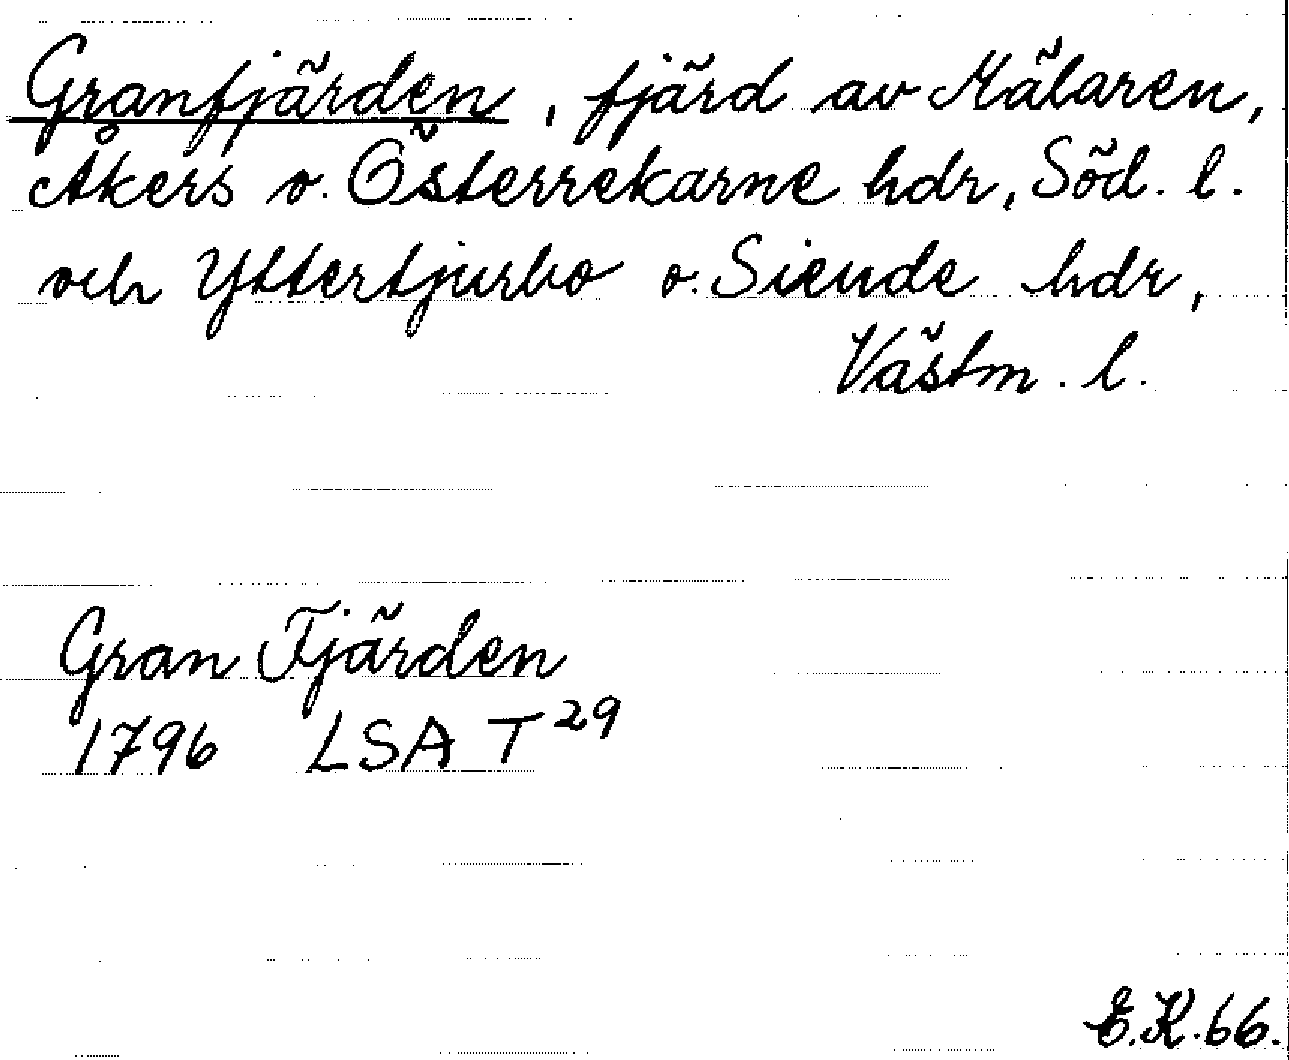 Granfjärden, fjärd av Mälaren,
Åkers o. Österrekarne hdr, Söd. l.
och Yttertjurbo o. Siende hdr,
Västm. l.
Gran Fjärden
1796 LSA T 29
E.K. 66.